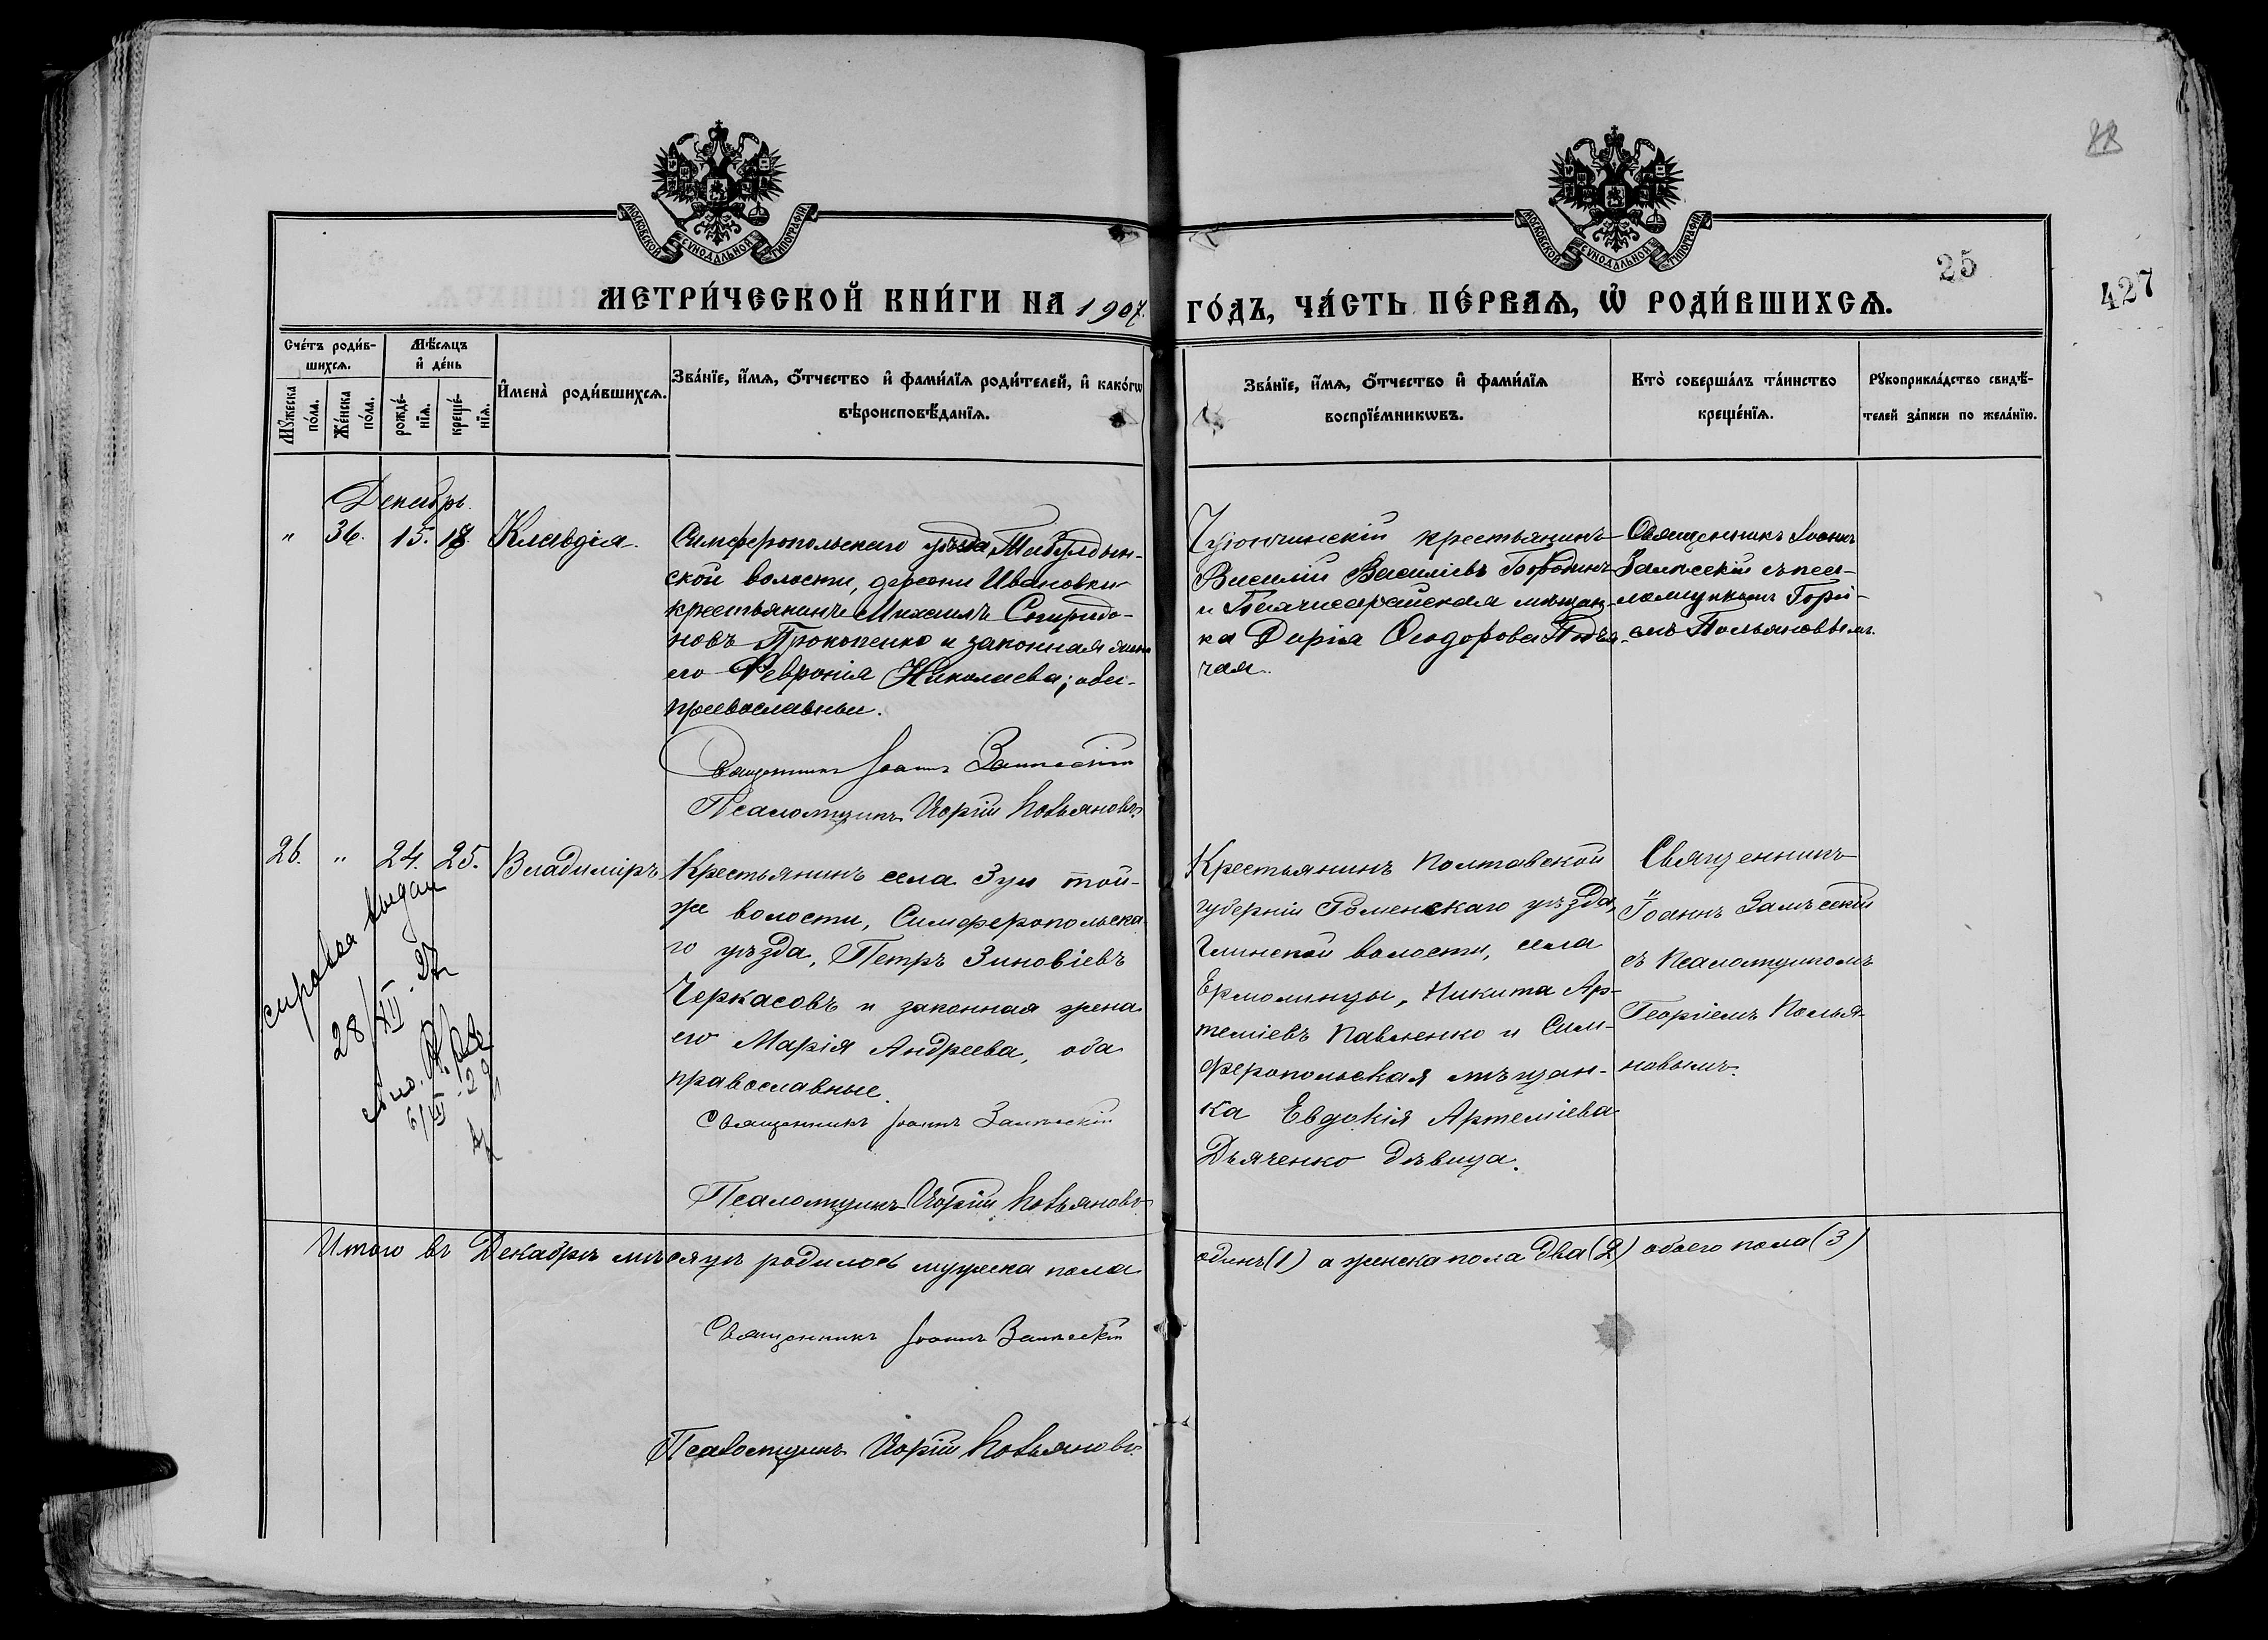 88
МОСКОВСКОЙ СУНОДАЛЬНОЙ ТИПОГРАФІИ
МОСКОВСКОЙ СУНОДАЛЬНОЙ ТИПОГРАФІИ
25
427
МЕТРИ́ЧЕСКОЙ КНИ́ГИ НА 1907.
ГО́ДЪ, ЧА́СТЬ ПЕ́РВАѦ, Ѡ҆ РОДИ́ВШИХСѦ.
Сче́тъ роди́в-
шихсѧ.
Мѣ́сѧцъ
и҆ де́нь
Мꙋ́жеска
по́ла.
Же́нска
по́ла.
рожде́-
нїѧ.
креще́-
нїѧ.
И҆мена̀ роди́вшихсѧ.
Зва́нїе, и҆́мѧ, ѻ҆́тчество и҆ фами́лїѧ роди́телей, и҆ како́гѡ
вѣроисповѣ́данїѧ.
Зва́нїе, и҆́мѧ, ѻ҆́тчество и҆ фами́лїѧ
воспрїе́мникѡвъ.
Кто̀ соверша́лъ та́инство
креще́нїѧ.
Рꙋкоприкла́дство свидѣ́-
телей за́писи по жела́нїю.
Декабрь.
" 36. 15. 18. Клавдія.
Симферопольскаго уѣзда Табулдын-
ской волости, деревни Ивановки
крестьянинъ Михаилъ Спиридо-
новъ Прокопенко и законная жена
его Февронія Николаева; оба
православные.
Священникъ Іоаннъ Залѣсскій
Псаломщикъ Юрій Польяновъ
крестьянинъ
Василій Васильевъ Бородинъ
и Бахчисарайская мѣщан-
ка Дарія Ѳеодорова
чая.
Священникъ Іоаннъ
Залѣсскій съ пса-
ломщикомъ Горі-
емъ Польяновымъ.
26. " 24. 25. Владиміръ
Крестьянинъ села Зуи той-
же волости, Симферопольска-
го уѣзда, Петръ Зиновіевъ
Черкасовъ и законная жена
его Марія Андреева, оба
православные.
Священникъ Іоаннъ Залѣсскій
Псаломщикъ Юрій Польяновъ
Крестьянинъ Полтавской
губерніи Роменскаго уѣзда,
Глинской волости, села
Ермолинцы, Никита Ар-
теміевъ Павленко и Сим-
феропольская мѣщан-
ка Евдокія Артеміева
Дьяченко дѣвица.
Священникъ
Іоаннъ Залѣсскій
съ Псаломщикомъ
Георгіемъ Полья-
новымъ.
справка выдан
28/XII - 27г
Итого въ Декабрѣ мѣсяцѣ родилось мужеска пола одинъ (1) а женска пола два (2) обоего пола (3)
Священникъ Іоаннъ Залѣсскій
Псаломщикъ Юрій Польяновъ